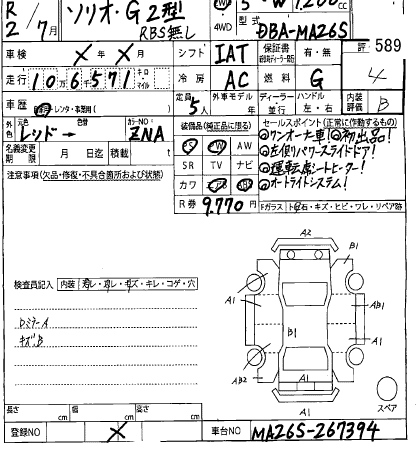 R 2/7月 ソリオ・G 2型 RBS無し 5 W 1,200 cc
4WD 型式 DBA-MA26S
車検 X年X月 シフト IAT 保証書 有・無 評 589
走行 106,571 キロ マイル 冷房 AC 燃料 G 4
車歴 レンタ・事業用( ) 定員 5人 外車モデル 年 ディーラー 並行 ハンドル 左・右 内装評価 B
外色 元色 レッド→ 色替 カラーNO ZNA 装備品(純正品に限る) セールスポイント(正常に作動するもの)
名義変更期限 月 日迄 積載 t PS PW AW ◎ワンオーナー車!◎初出品!
◎左側パワースライドドア!
注意事項(欠品・修復・不具合箇所および状態) SR TV ナビ ◎運転席シートヒーター!
カワ エアB ABS ◎オートライトシステム!
R券 9,770 Fガラス トビ石・キズ・ヒビ・ワレ・リペア跡
検査員記入 内装 汚レ・コレ・キズ・キレ・コゲ・穴
ロミラーA
キズB
A2
B1
A1
A1
AB1
B1
A1
AB2
A1
A1
スペア
長さ cm 幅 cm 高さ cm
登録NO X 車台NO MA26S-267394